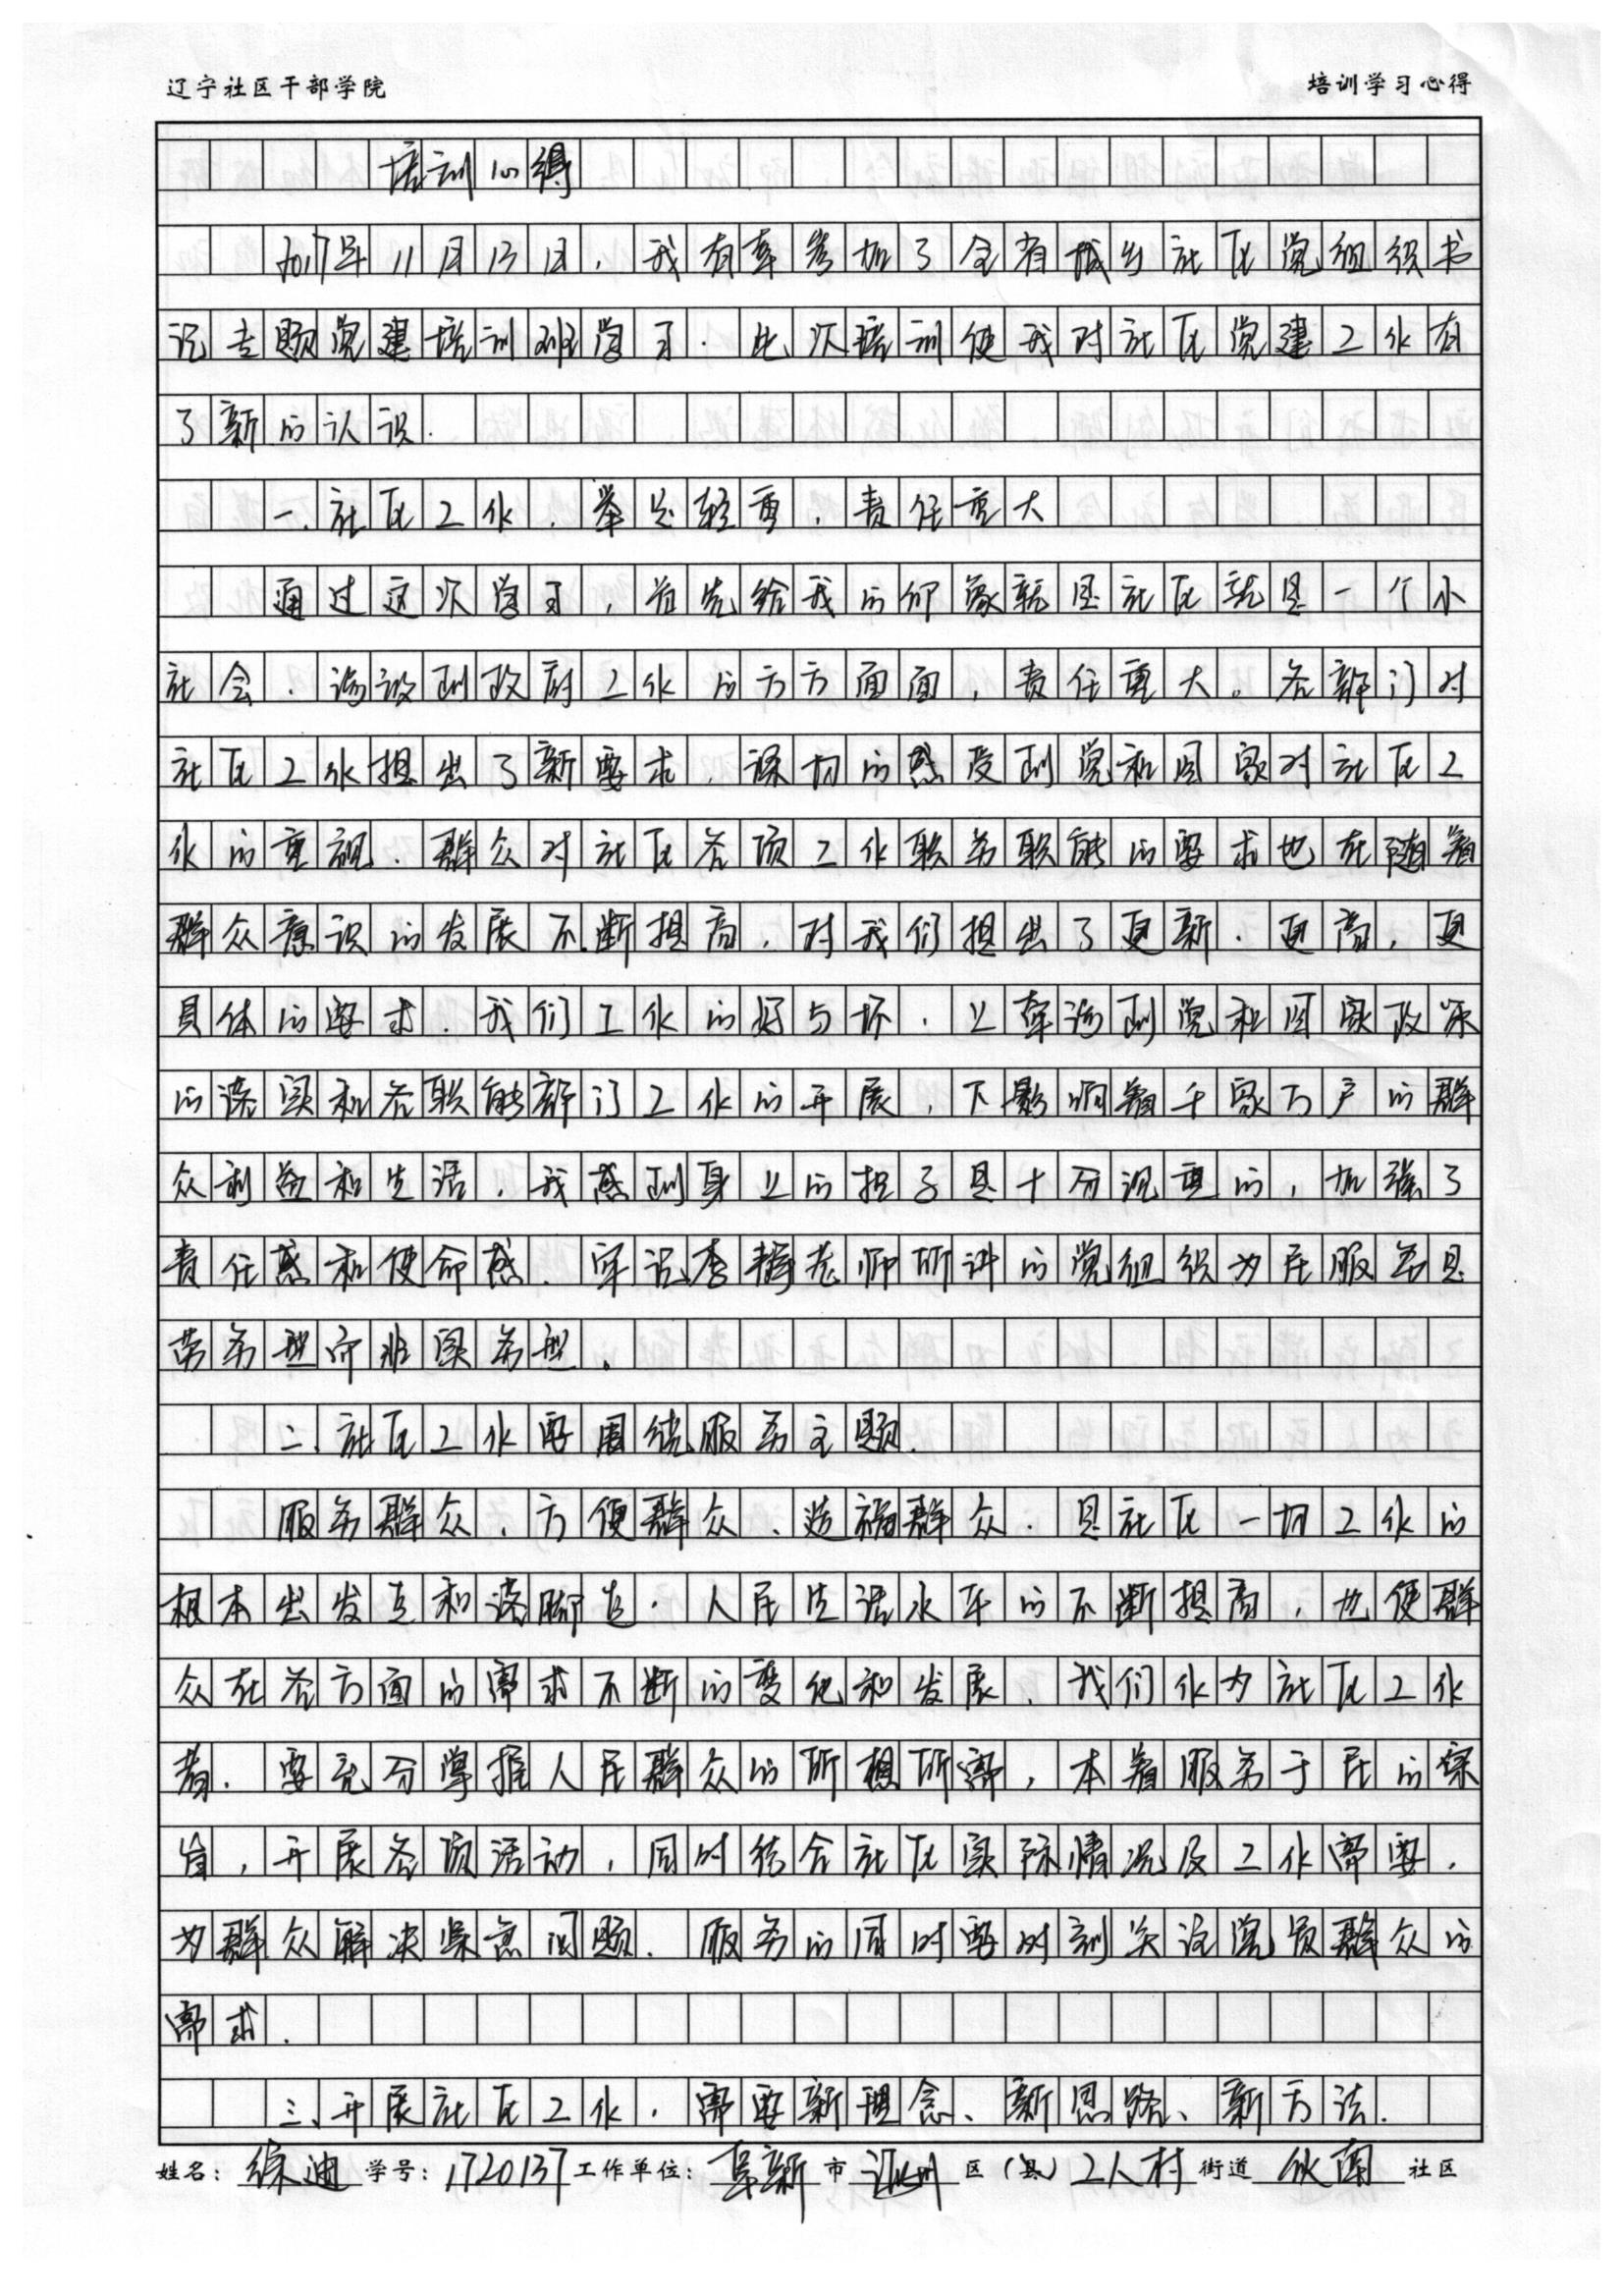 辽宁社区干部学院
培训学习心得
培训心得
2017年11月13日,我有幸参加了全省城乡社区党组织书
记专题党建培训班学习.此次培训使我对社区党建工作有
了新的认识.
一、社区工作,举足轻重,责任重大
通过这次学习,首先给我的印象就是社区就是一个小
社会.涉设到政府工作的方方面面,责任重大。各部门对
社区工作提出了新要求,深切的感受到党和国家对社区工
作的重视.群众对社区各项工作职务职能的要求也在随着
群众意识的发展不断提高,对我们提出了更新.更高,更
具体的要求.我们工作的好与坏,上牵涉到党和国家政策
的落实和各职能部门工作的开展,下影响着千家万户的群
众利益和生活,我感到身上的担子是十分沉重的,加强了
责任感和使命感 牢记李辉老师所讲的党组织为民服务是
劳务型而非实务型。
二、社区工作要围绕服务主题.
服务群众,方便群众,造福群众.是社区一切工作的
根本出发点和落脚点.人民生活水平的不断提高,也使群
众在各方面的需求不断的变化和发展.我们作为社区工作
者.要充分掌握人民群众的所想所需,本着服务于民的宗
旨,开展各项活动,同时结合社区实际情况及工作需要.
为群众解决紧急问题.服务的同时要时刻关注党员群众的
需求.
三、开展社区工作.需要新理念、新思路、新方法.
姓名:徐迪 学号:1720137 工作单位:阜新 市 区(县)工人村 街道 社区